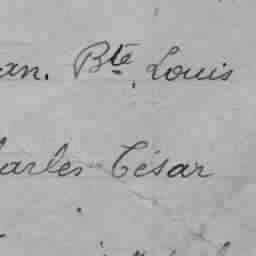 an. Bte. Louis
arles César